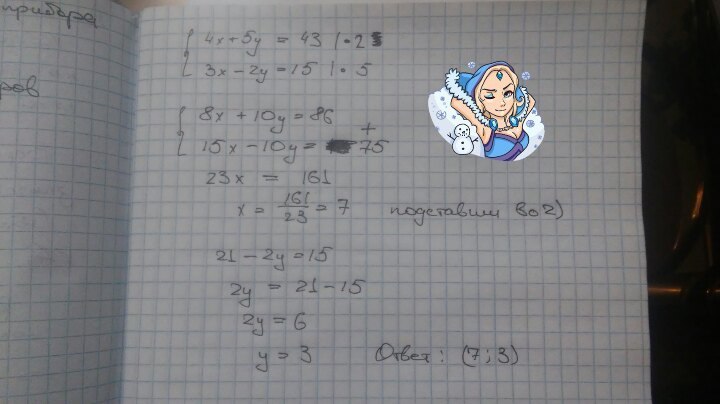 прибора
ров
4x+5y = 43 | • 2
3x−2y=15 | • 5
8x + 10y = 86
+
15x − 10y = 75
23x = 161
x = 161/23 = 7 подставим во 2)
21 − 2y = 15
2y = 21 − 15
2y = 6
y = 3 Ответ: (7; 3)